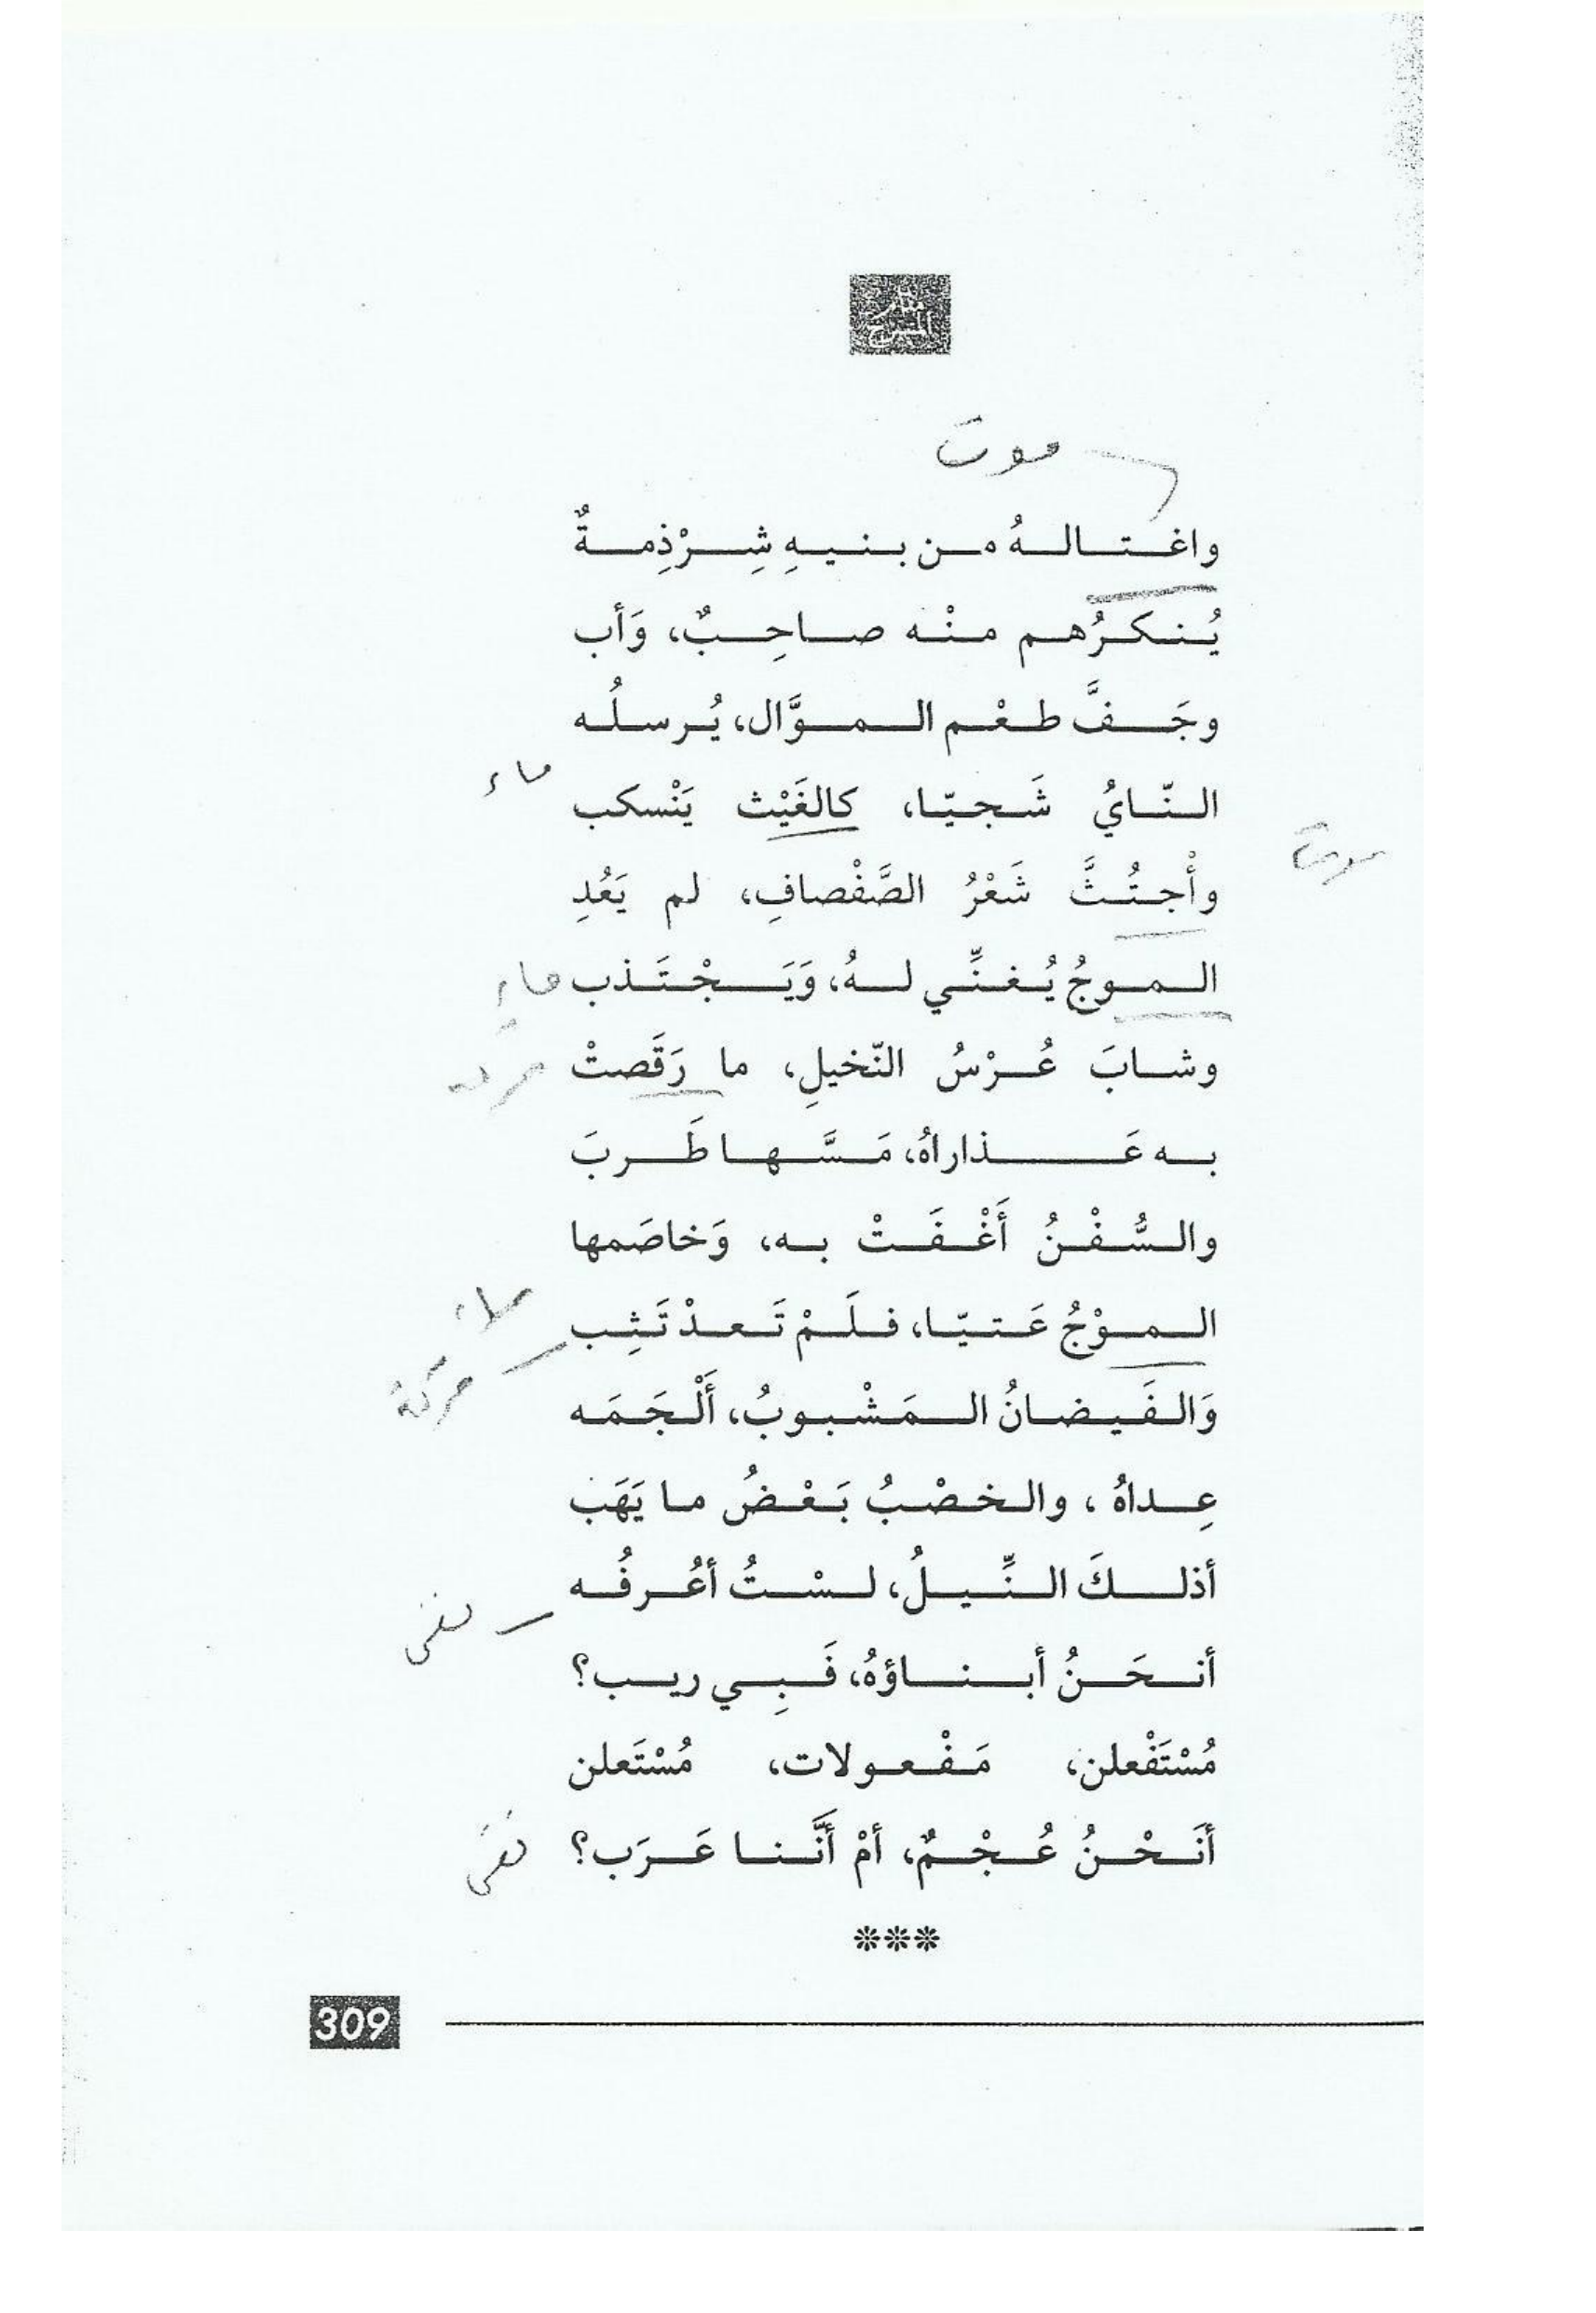 موت
واغتالهُ من بنيهِ شِرْذِمةٌ
يُنكرُهم منْه صاحِبٌ، وَأب
وجَفَّ طعْم الموَّال، يُرسلُه
ماء
النّايُ شَجيّا، كالغَيْث يَنْسكب
موت
وأْجتُثَّ شَعْرُ الصَّفْصافِ، لم يَعُدِ
الموجُ يُغنِّي لهُ، وَيَجْتَذب
ماء
وشابَ عُرْسُ النّخيلِ، ما رَقَصتْ
حركة
به عَذاراهُ، مَسَّها طَربَ
والسُّفْنُ أَغْفَتْ به، وَخاصَمها
الموْجُ عَتيّا، فلَمْ تَعدْ تَثِب
حركة
وَالفَيضانُ المَشْبوبُ، أَلْجَمَه
عِداهُ ، والخصْبُ بَعْضُ ما يَهَب
أذلكَ النِّيلُ، لسْتُ أعُرفُه
نفى
أنحَنُ أبناؤهُ، فَبِي ريب؟
مُسْتَفْعلن، مَفْعولات، مُسْتَعلن
أنَحْنُ عُجْمٌ، أمْ أنَّنا عَرَب؟
نفى
***
309